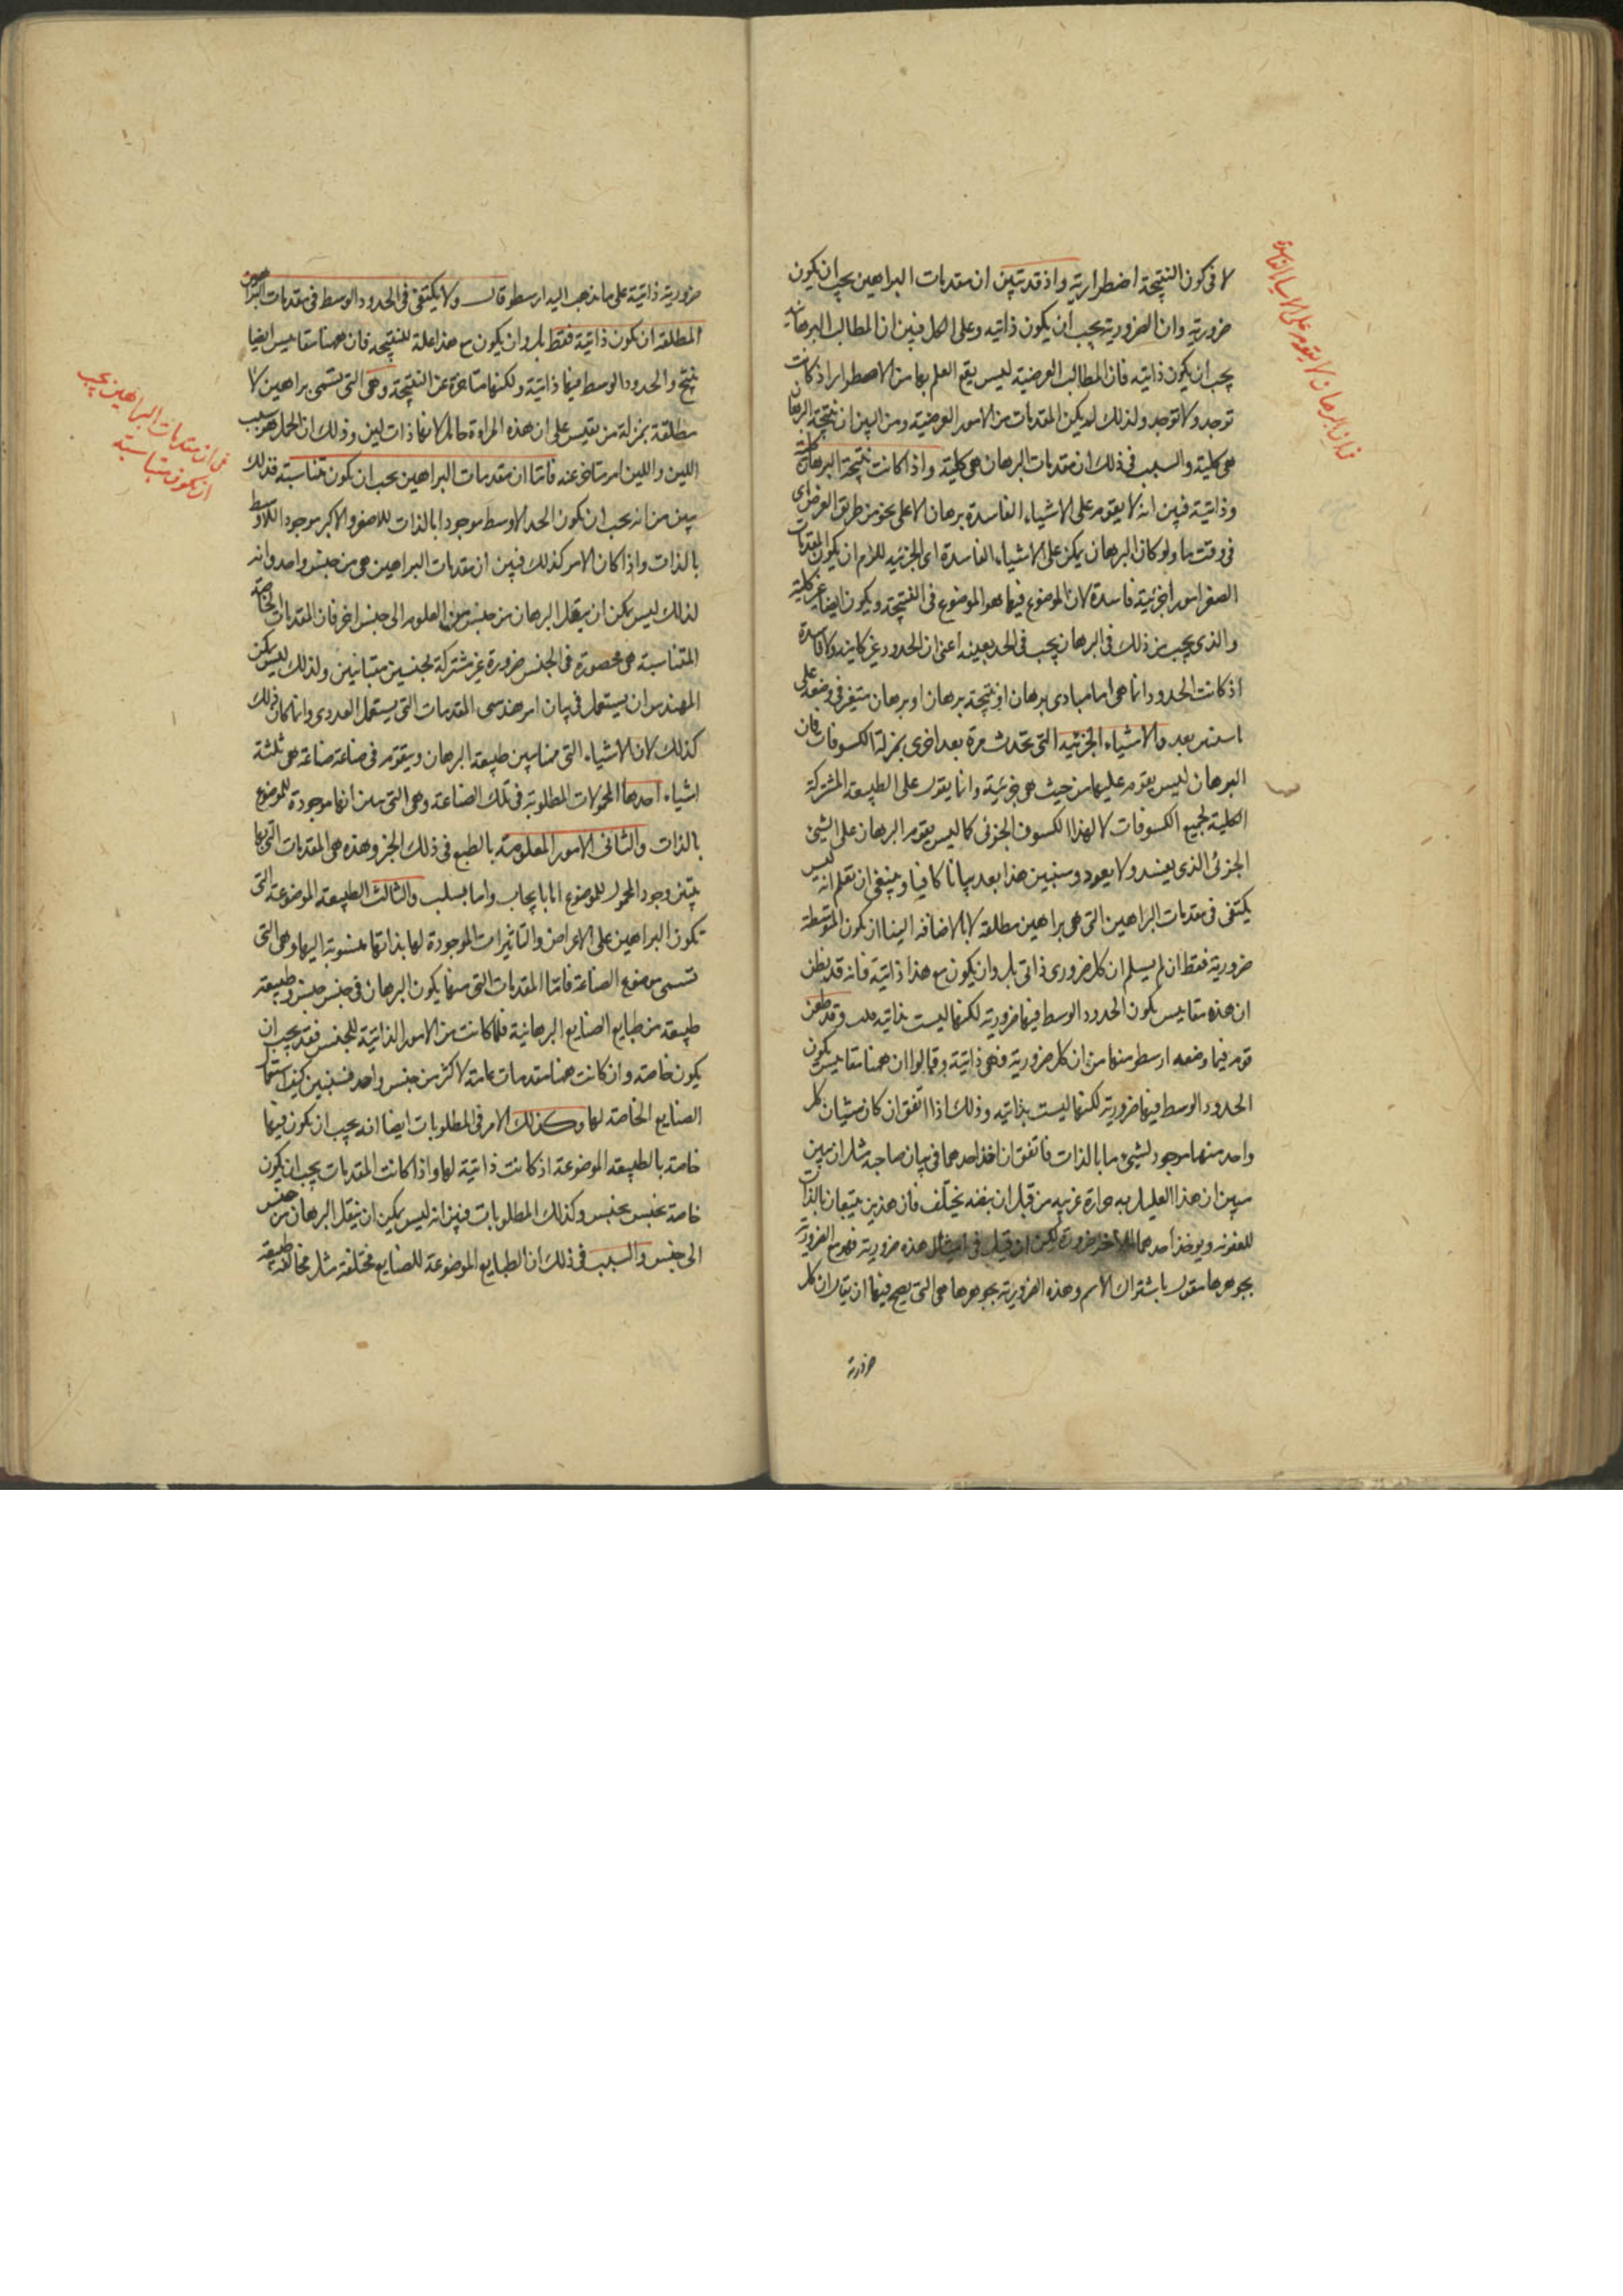 لا فى كون النتيجة اضطرارية واذ قد تبين ان مقدمات البراهين يجب ان يكون
ضرورية وان الضرورية يجب ان يكون ذاتية وعلى الحمل فبين ان المطالب البرهانية
يجب ان يكون ذاتية فان المطالب العرضية ليس يقع العلم بها من الاضطرار اذ كانت
توجد ولا توجد ولذلك لم يكن المقدمات من الامور العرضية ومن البين ان نتيجة البرهان
هى كلية والسبب فى ذلك ان مقدمات البرهان هى كلية واذا كانت نتيجة البرهان كلية
وذاتية فبين انه لا يقوم على الاشياء الفاسدة برهان الا على نحو من طريق العرض اى
فى وقت ما ولو كان البرهان يمكن على الاشياء الفاسدة اى الجزئية للزم ان يكون المقدمات
الصغر امورا جزئية فاسدة لان الموضوع فيها هو الموضوع فى النتيجة ويكون ايضا غير كلية
والذى يجب من ذلك فى البرهان يجب فى الحد بعينه اعنى ان الحدود غير كاينة ولا فاسدة
اذ كانت الحدود انما هى اما مبادى برهان او نتيجة برهان او برهان متغير فى وضعه على
ما سنبين بعد والاشياء الجزئية التى تحدث مرة بعد اخرى بمنزلة الكسوفات فان
البرهان ليس يقوم عليها من حيث هى جزئية وانما يقوم على الطبيعة المشتركة
الكلية لجميع الكسوفات لا لهذا الكسوف الجزئى كما ليس يقوم البرهان على الشئ
الجزئى الذى يفسد ولا يعود وسنبين هذا بعد بيانا كافيا وينبغى ان تعلم انه ليس
يكتفى فى مقدمات البراهين التى هى براهين مطلقة لا بالاضافة الينا ان يكون المتوسطة
ضرورية فقط ان لم يسلم ان كل ضرورى ذاتى بل وان يكون مع هذا ذاتية فانه قد يظن
ان هذه مقاييس يكون الحدود الوسط فيها ضرورية لكنها ليست ذاتية وقد طعن
قوم فيما وضعه ارسطو منها من ان كل ضرورية فهى ذاتية وقالوا ان ههنا مقاييس يكون
الحدود الوسط فيها ضرورية لكنها ليست بذاتية وذلك اذا اتفق ان كان شيئان كل
واحد منهما موجود لشئ ما بالذات فاتفق ان اخذ احدهما فى بيان صاحبه مثل ان يبين
مبين ان هذا العليل به حرارة غريبة من قبل ان نبضه يختلف فان هذين يتبعان بالذات
للعفونة ويوخذ احدهما للاخر ضرورة لكن ان قيل فى امثال هذه ضرورية فهو مع الضرورية
بجوهرها مقول باشتراك الاسم وهذه الضرورية بجوهرها هى التى يصح فيها ان يقال ان كل
ضرورية
فى ان البرهان لا يقوم على الاشياء الفاسدة
ضرورية ذاتية على ما يذهب اليه ارسطو قال ولا يكتفى فى الحدود الوسط فى مقدمات البراهين
المطلقة ان تكون ذاتية فقط بل وان يكون مع هذا علة للنتيجة فان ههنا مقاييس ايضا
تنتج والحدود الوسط فيها ذاتية ولكنها متاخرة عن النتيجة وهى التى تسمى براهين لا
مطلقة بمنزلة من يقيس على ان هذه المراة حامل لانها ذات لبن وذلك ان الحمل هو سبب
اللبن واللبن امر متاخر عنه فاما ان مقدمات البراهين يجب ان تكون متناسبة فذلك
يبين من انه يجب ان يكون الحد الاوسط موجودا بالذات للاصغر والاكبر موجود للاوسط
بالذات واذا كان الامر كذلك فبين ان مقدمات البراهين هى من جنس واحد وانه
لذلك ليس يمكن ان ينقل البرهان من جنس من العلوم الى جنس اخر فان المقدمات الخاصة
المتناسبة هى محصورة فى الجنس ضرورة غير مشتركة لجنسين متباينين ولذلك ليس يمكن
المهندس ان يستعمل فى بيان امر هندسى المقدمات التى يستعمل العددى وانما كان ذلك
كذلك لان الاشياء التى منها يبين طبيعة البرهان ويتقوم فى صناعة صناعة هى ثلثة
اشياء احدها المحمولات المطلوبة فى تلك الصناعة وهى التى يبين انها موجودة للموضوع
بالذات والثانى الامور المعلومة بالطبع فى ذلك الجنس وهذه هى المقدمات التى بها
يتبين وجود المحمول للموضوع اما بايجاب واما بسلب والثالث الطبيعة الموضوعة التى
تكون البراهين على الاعراض والتاثيرات الموجودة لها بذاتها منسوبة اليها وهى التى
تسمى موضوع الصناعة فاما المقدمات التى منها يكون البرهان فى جنس جنس وطبيعة
طبيعة من طبايع الصنايع البرهانية فلما كانت من الامور الذاتية للجنس فقد يجب ان
يكون خاصة وان كانت ههنا مقدمات عامة لاكثر من جنس واحد فسنبين كيف استعمال
الصنايع الخاصة لها وكذلك الامر فى المطلوبات ايضا انه يجب ان تكون فيها
خاصة بالطبيعة الموضوعة اذ كانت ذاتية لها واذا كانت المقدمات يجب ان يكون
خاصة بجنس بجنس وكذلك المطلوبات فبين انه ليس يمكن ان ينقل البرهان من جنس
الى جنس والسبب فى ذلك ان الطبايع الموضوعة للصنايع مختلفة مثل مخالفة طبيعة
فى ان مقدمات البراهين يجب
ان تكون متناسبة